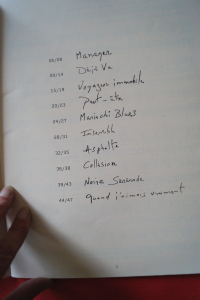 05/08 Manager
09/14 Déjà Vu
15/19 Voyageur immobile
20/23 Peut-être
24/27 Mariachi Blues
28/31 Ensemble
32/35 Asphalte
36/38 Collision
39/43 Noire Sérénade
44/47 Quand j'aimais vraiment